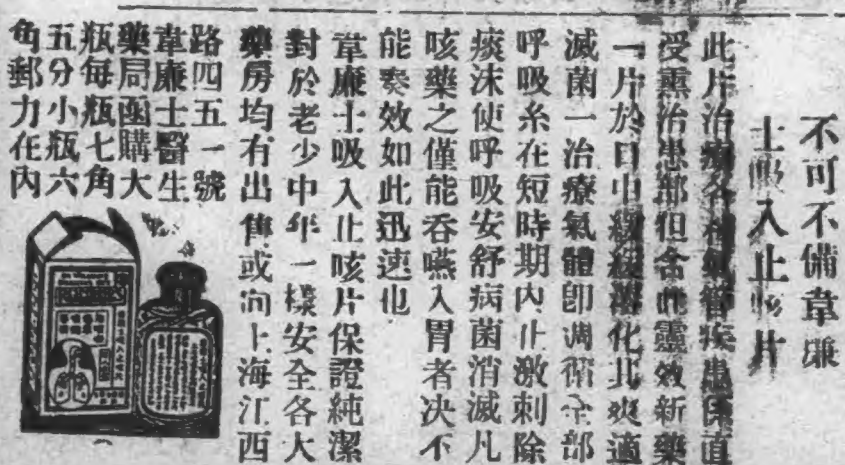 不可不備韋廉
士吸入止咳片
此片治療各種氣管疾患係直
受熏治患部但含此靈效新藥
一片於口中緩緩溶化其爽適
滅菌一治療氣體卽调循全部
呼吸糸在短時期內止激刺除
痰沫使呼吸安舒病菌消滅凡
咳藥之僅能吞嚥入胃者决不
能奏效如此迅速也
韋廉士吸入止咳片保證純潔
對於老少中年一樣安全各大
藥房均有出售或向上海江西
路四五一號
韋廉士醫生
藥局函購大
瓶每瓶七角
五分小瓶六
角郵力在內